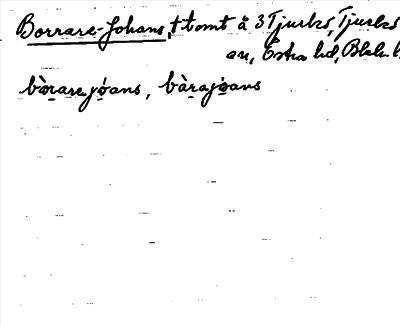 Borrare-Johans, † tomt å 3 Tjurkö, Tjurkö
an, Östra hd, Blek. l.
bòrarejóans, bàrajóans